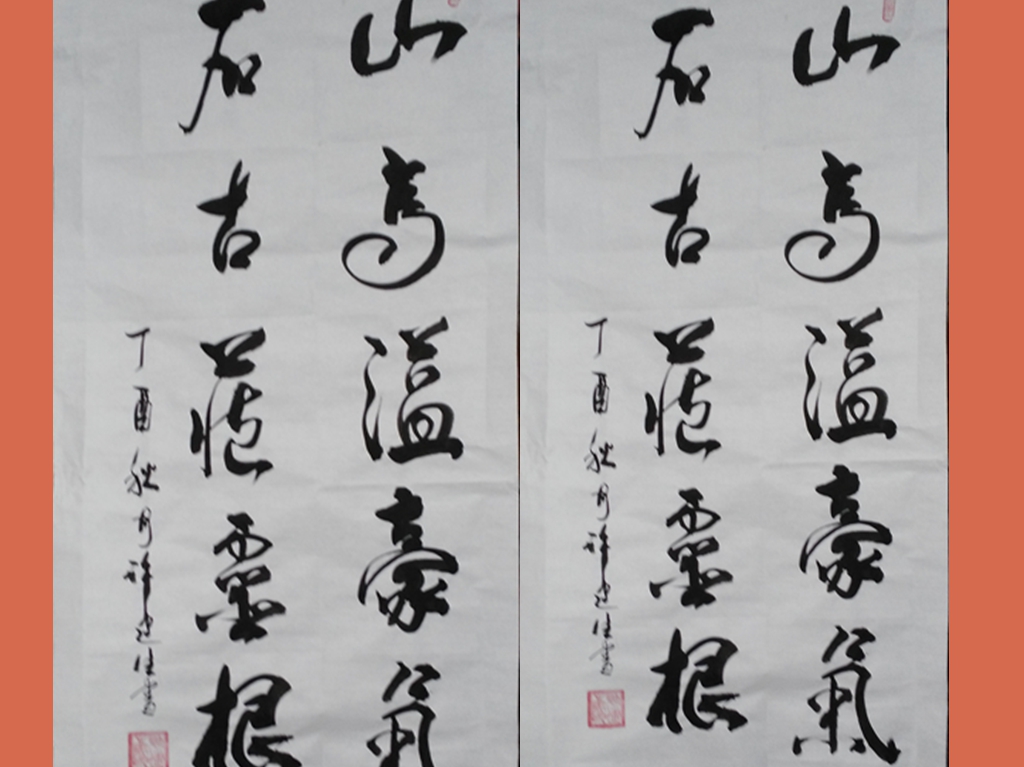 山高溢豪氣
石古蘊靈根
丁酉秋月許建生書
山高溢豪氣
石古蘊靈根
丁酉秋月許建生書